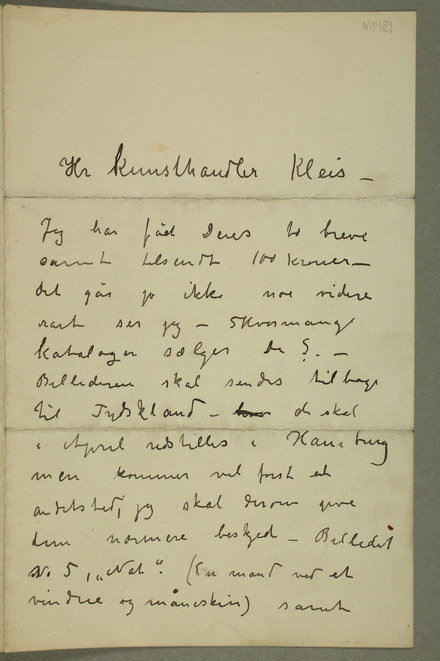 N3489
Hr Kunsthandler Kleis –
Jeg har fåd Deres to breve
samt tilsendt 100 Kroner –
det går jo ikke noe videre
rart ser jeg –
Kataloger sælger De ?. –
Billederne skal sendes tilbage
til Tydskland – de skal
i April udstilles i Hamburg
men kommer vel først et
andetsted, jeg skal derom give
dem nærmere besked – Billedet
No 5, „Nat". (En mand ved et
vindue og måneskin) samt